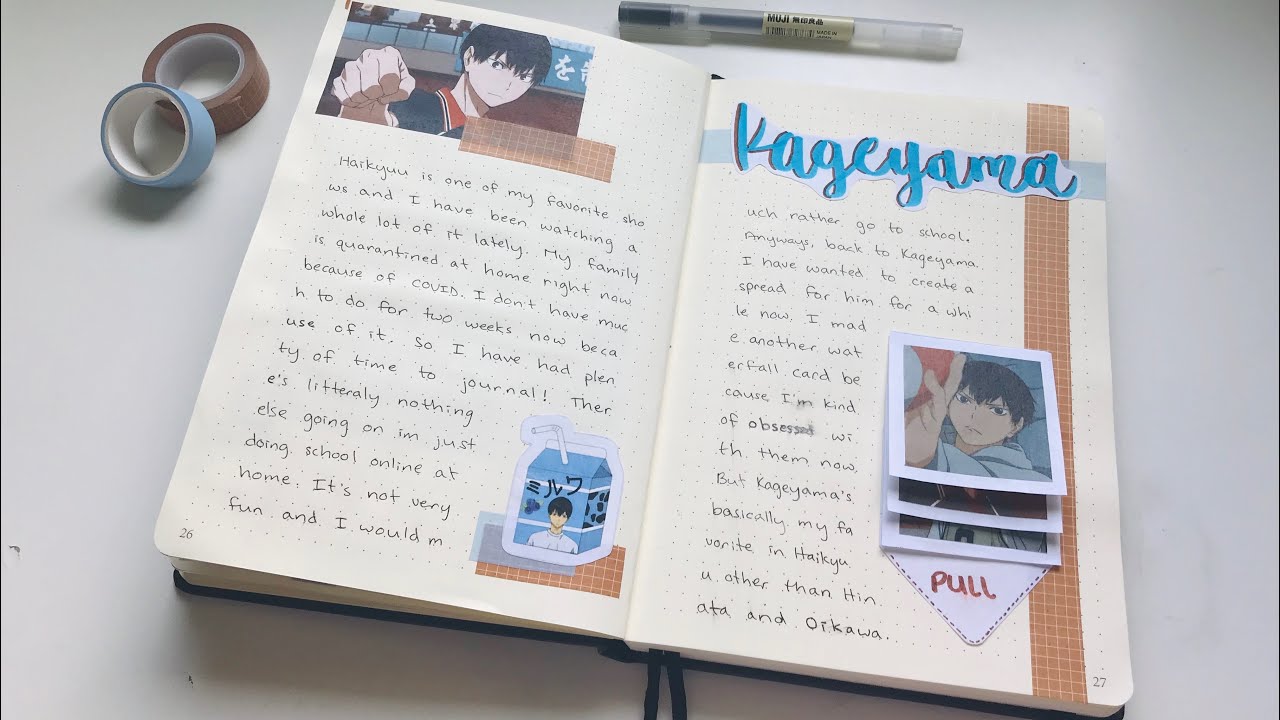 MUJI 無印良品
MADE IN JAPAN
Haikyuu is one of my favorite sho
ws and I have been watching a
whole lot of it lately. My family
is quarantined at home right now
because of COVID. I don't have muc
h to do for two weeks now beca
use of it. So, I have had plen
ty of time to journal! Ther
e's litteraly nothing
else going on im just
doing school online at
home. It's not very
fun and I would m
ミルワ
26
Kageyama
uch rather go to school.
Anyways, back to Kageyama.
I have wanted to create a
spread for him for a whi
le now. I mad
e another wat
erfall card be
cause I'm kind
of obsessed wi
th them now.
But Kageyama's
basically my fa
vorite in Haikyu
u other than Hin
ata and Oikawa.
PULL
27